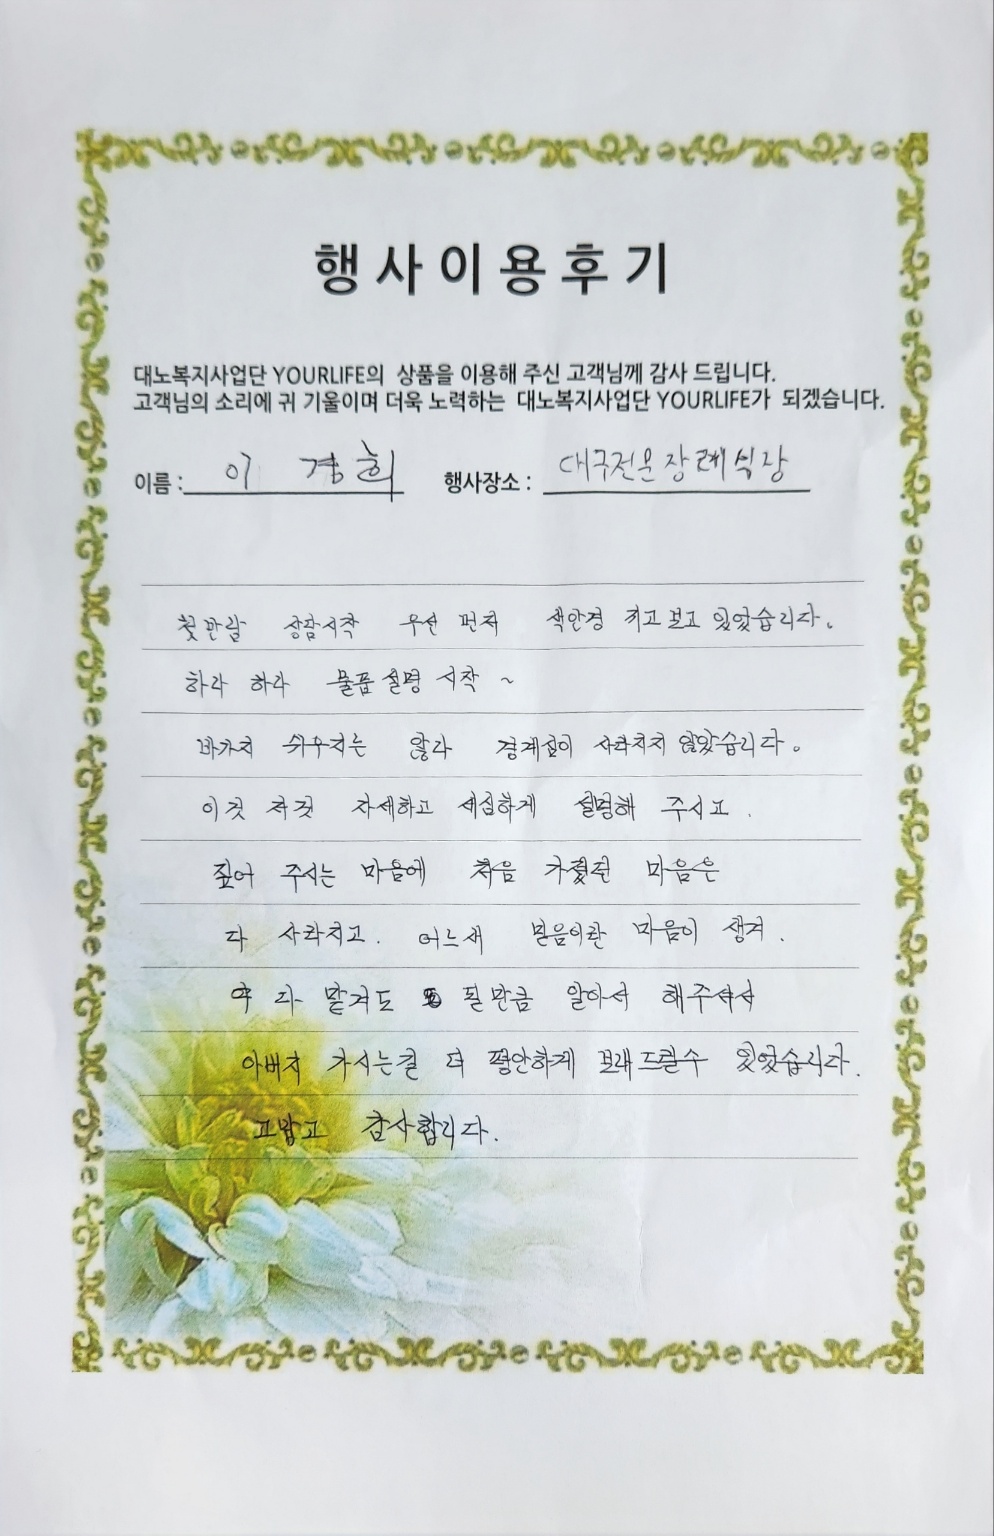 행사이용후기
대노복지사업단 YOURLIFE의 상품을 이용해 주신 고객님께 감사 드립니다.
고객님의 소리에 귀 기울이며 더욱 노력하는 대노복지사업단 YOURLIFE가 되겠습니다.
이름 : 이경희 행사장소 : 대구전문장례식장
첫만남 상담시작 우선 먼저 색안경 끼고보고 있었습니다.
하라 하라 물품설명 시작 ~
바가지 쉬우지는 않라 경계심이 사라지지 않았습니다.
이것 저것 자세하고 세심하게 설명해 주시고.
짚어 주시는 마음에 처음 가졌던 마음은
다 사라지고. 어느새 믿음이란 마음이 생겨.
다 맡겨도 될만큼 알아서 해주셔서
아버지 가시는길 더 평안하게 보내드릴수 있었습니다.
고맙고 감사합니다.